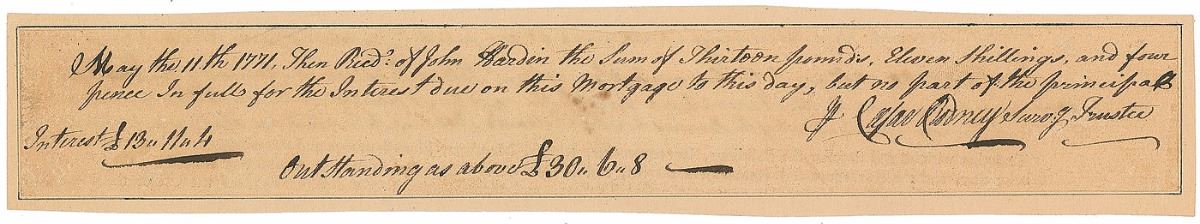 May the 11th 1771. Then Recd. of John Hardin the Sum of Thirteen pounds, Eleven Shillings, and four
pence In full for the Interest due on this Mortgage to this day, but no part of the principal
Caesar Rodney Surv.g Trustee
Interest £13„11„4
Outstanding as above £30„6„8